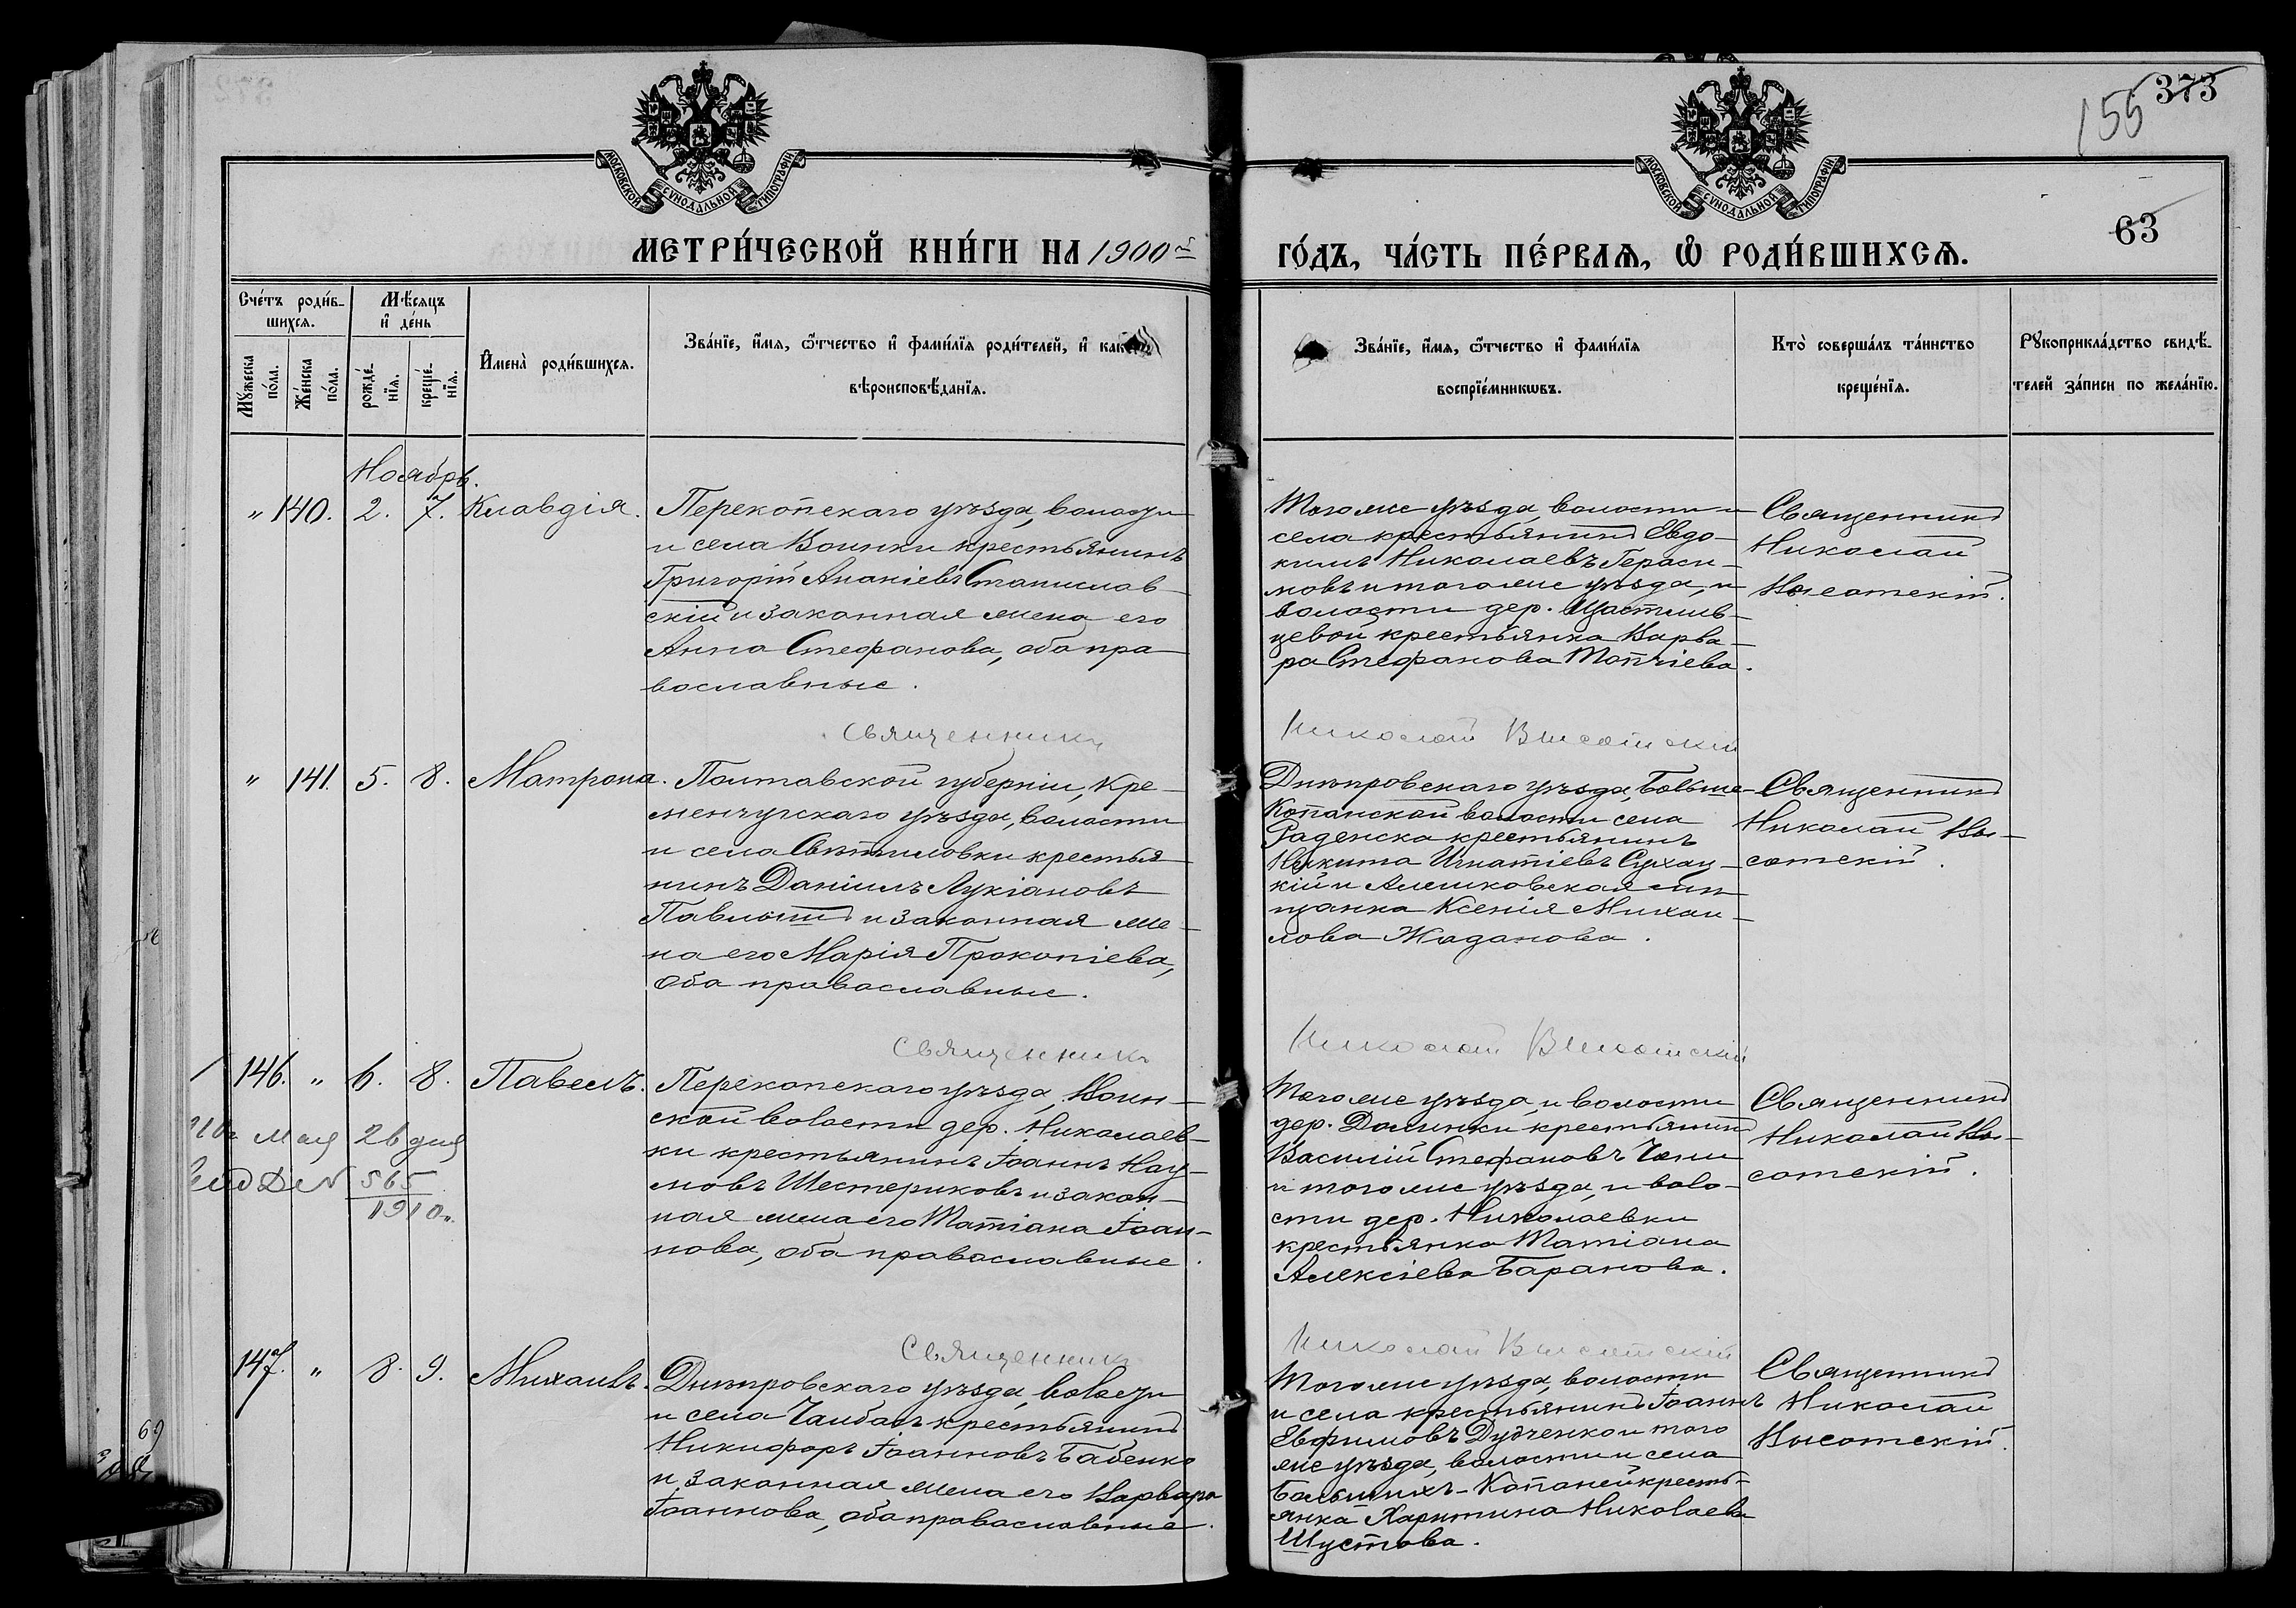 373
155
63
МОСКОВСКОЙ СѴНОДАЛЬНОЙ ТИПОГРАФІИ
МОСКОВСКОЙ СѴНОДАЛЬНОЙ ТИПОГРАФІИ
МЕТРИ́ЧЕСКОЙ КНИ́ГИ НА 1900й
ГО́ДЪ, ЧА́СТЬ ПЕ́РВАѦ, Ѡ҆ РОДИ́ВШИХСѦ.
Сче́тъ роди́в-
шихсѧ.
Мꙋ́жеска
по́ла.
Же́нска
по́ла.
Мѣ́сѧцъ
и҆ де́нь
рожде́-
нїѧ.
креще́-
нїѧ.
И҆мена̀ роди́вшихсѧ.
Зва́нїе, и҆́мѧ, ѻ҆́тчество и҆ фами́лїѧ роди́телей, и҆
вѣроисповѣ́данїѧ.
Зва́нїе, и҆́мѧ, ѻ҆́тчество и҆ фами́лїѧ
воспрїе́мникѡвъ.
Кто̀ соверша́лъ та́инство
креще́нїѧ.
Рꙋкоприкла́дство свидѣ́-
телей за́писи по жела́нїю.
Ноябрь.
„ 140. 2. 7. Клавдія.
Перекопскаго уѣзда, волости
и села Воинки крестьянинъ
Григорій Ананіевъ Станислав-
скій и законная жена его
Анна Стефанова, оба пра-
вославные.
Тогоже уѣзда, волости и
села крестьянинъ Евдо-
кимъ Николаевъ Гераси-
мовъ и тогоже уѣзда, и
волости дер. Счастлив-
цевой крестьянка Варва-
ра Стефанова Топчіева.
Священникъ
Николай
Высотскій.
Священникъ
Николай Высотскій
„ 141. 5. 8. Матрона.
Полтавской губерніи, Кре-
менчугскаго уѣзда, волости
и села Свѣтиловки крестья-
нинъ Даніилъ Лукіановъ
Павлышъ и законная же-
на его Марія Прокопіева,
оба православные.
Днѣпровскаго уѣзда, Больше-
Копанской волости села
Раденска крестьянинъ
Никита Игнатіевъ Сухац-
кій и Алешковская мѣ-
щанка Ксенія Михаи-
лова Жаданова.
Священникъ
Николай Вы-
сотскій.
Священникъ
Николай Высотскій
146. „ 6. 8. Павелъ.
мая 26 дня
565
1910
Перекопскаго уѣзда, Воин-
ской волости дер. Николаев-
ки крестьянинъ Іоаннъ Нау-
мовъ Шестериковъ и закон-
ная жена его Татіана Іоан-
нова, оба православные.
Тогоже уѣзда, и волости
дер. Долинки крестьянинъ
Василій Стефановъ
и тогоже уѣзда, и воло-
сти дер. Николаевки
крестьянка Татіана
Алексіева Баранова.
Священникъ
Николай Вы-
сотскій.
Священникъ
Николай Высотскій
147. „ 8. 9. Михаилъ.
Днѣпровскаго уѣзда, волости
и села Чалбасъ крестьянинъ
Никифоръ Іоанновъ Бабенко
и законная жена его Варвара
Іоаннова, оба православные.
Тогоже уѣзда, волости
и села крестьянинъ Іоаннъ
Евфимовъ Дудченко и того
же уѣзда, волости и села
Большихъ-Копаней кресть-
янка Харитина Николаева
Шустова.
Священникъ
Николай
Высотскій.
69